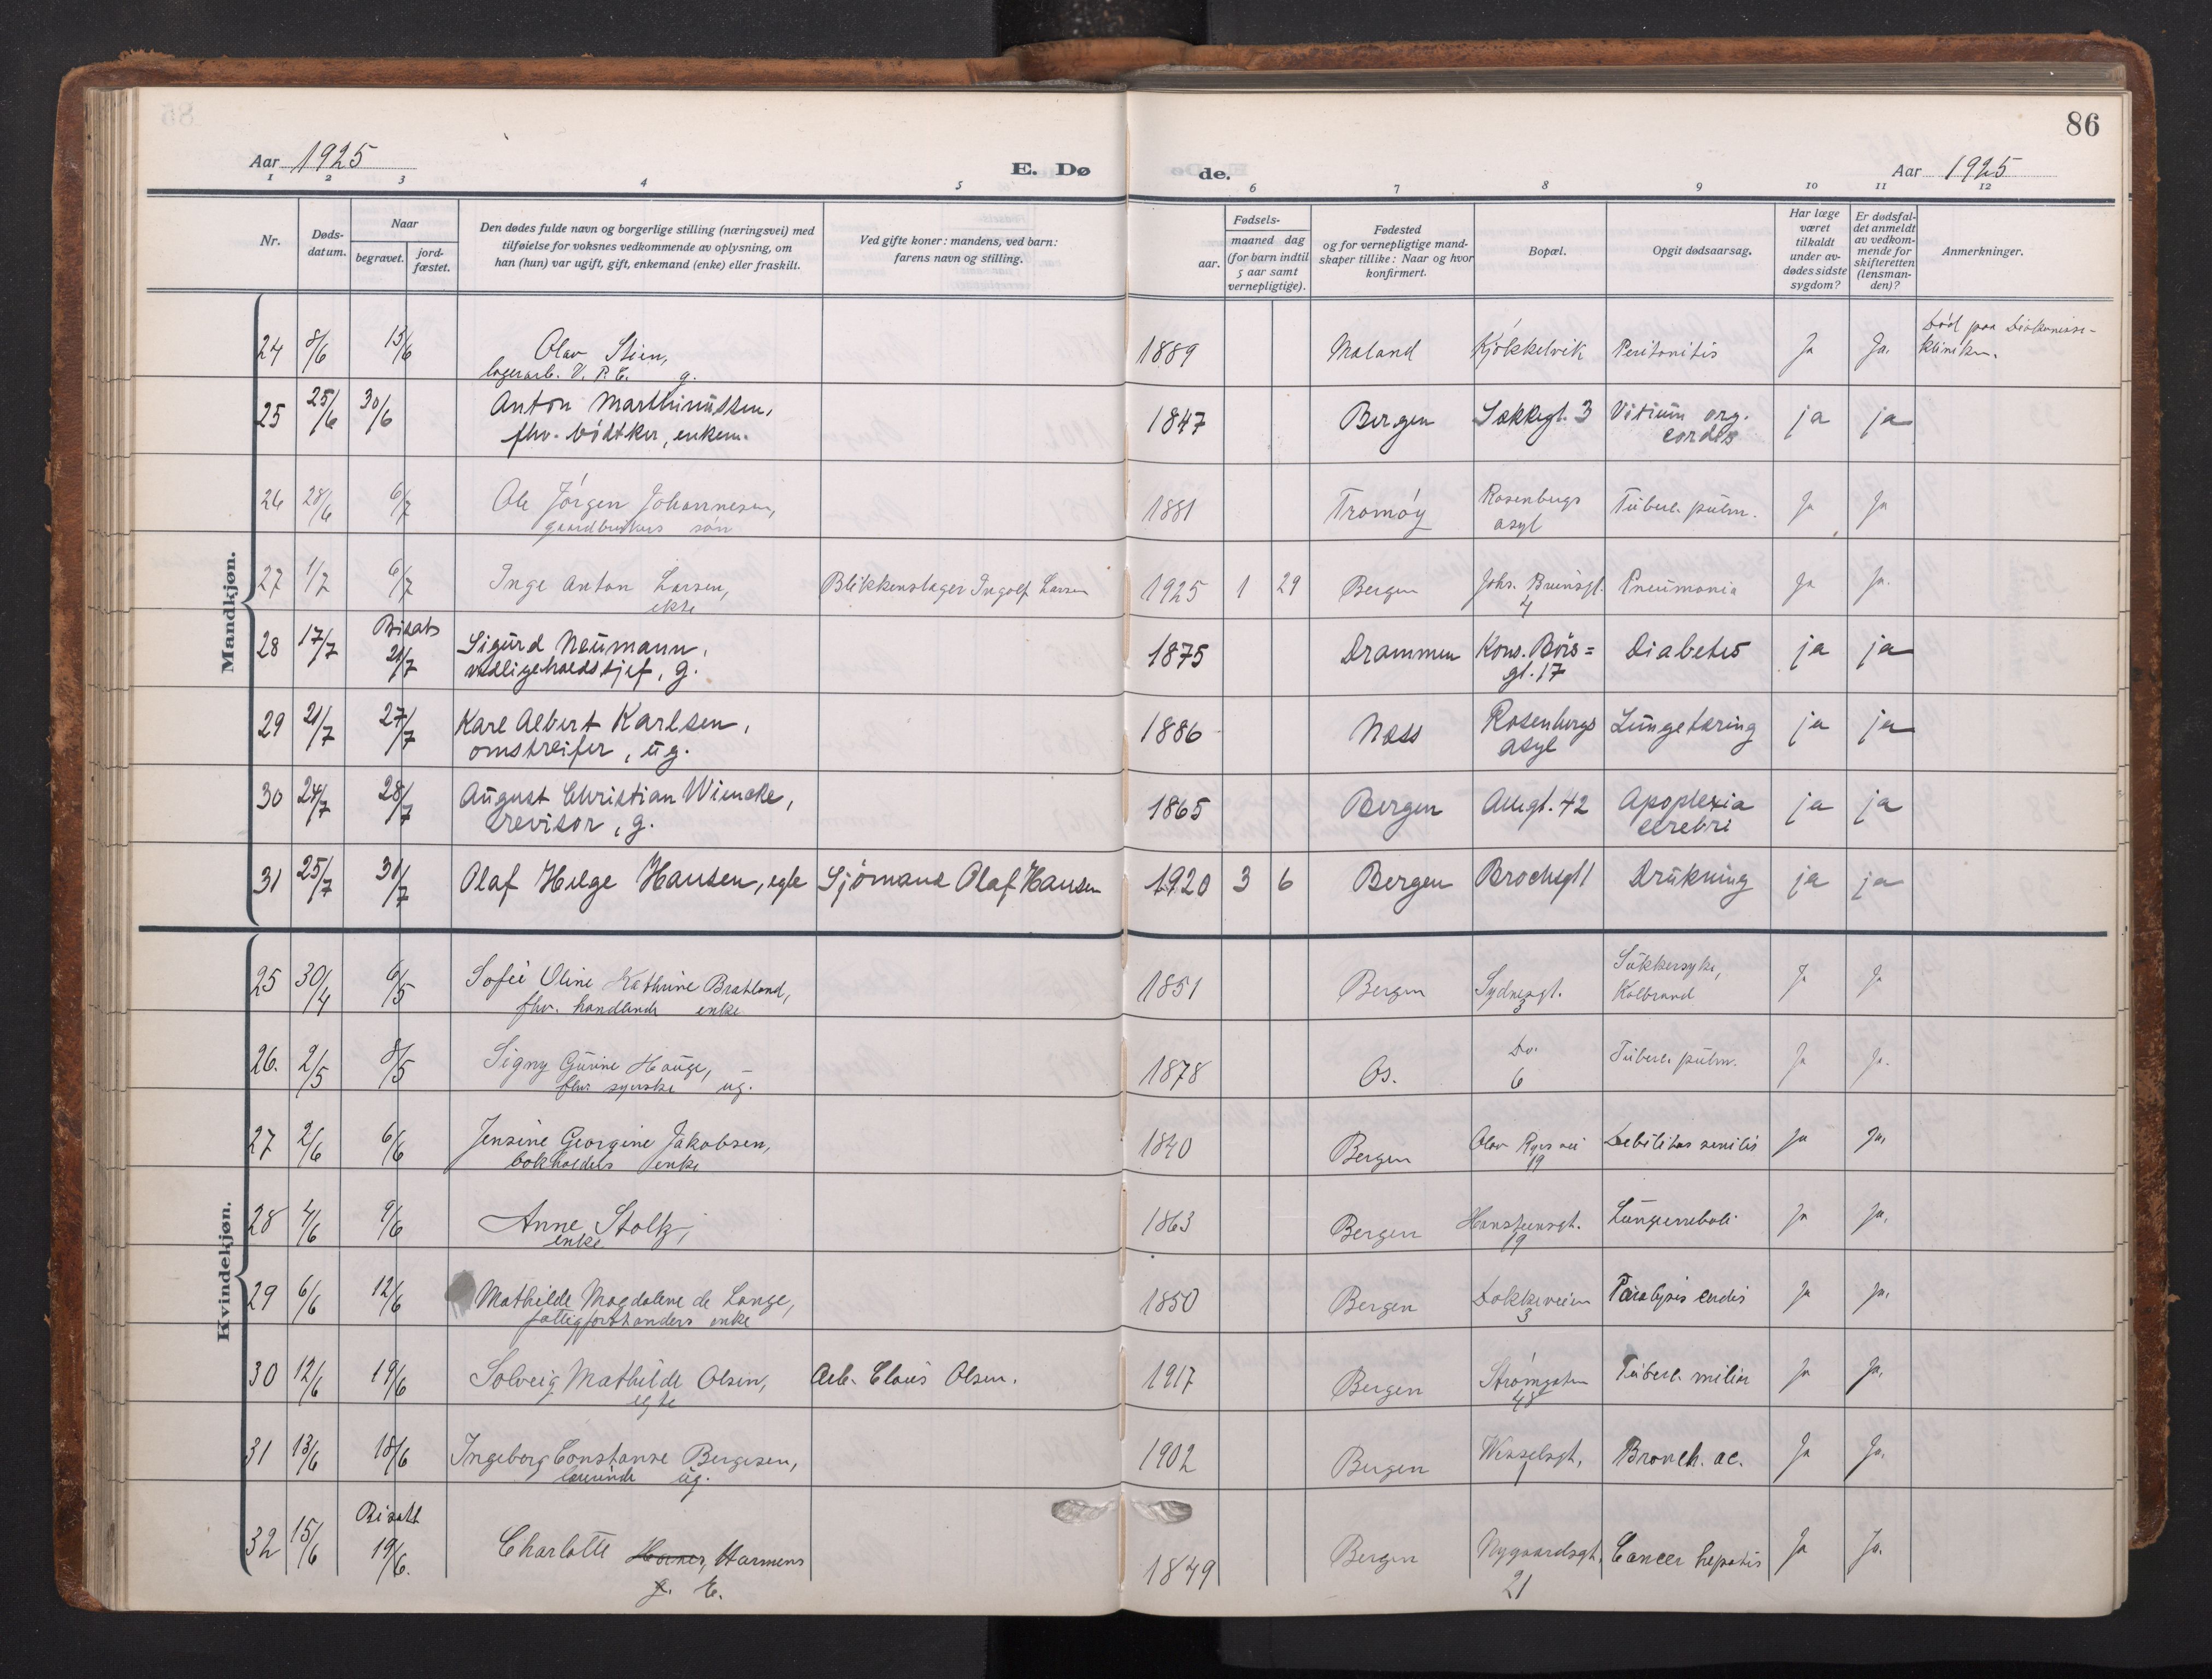 86
Aar 1925 E. Dø de. Aar 1925
1 2 3 4 5 6 7 8 9 10 11 12
Nr.
Døds-
datum.
Naar
begravet.
jord-
fæstet.
Den dødes fulde navn og borgerlige stilling (næringsvei) med
tilføielse for voksnes vedkommende av oplysning, om
han (hun) var ugift, gift, enkemand (enke) eller fraskilt.
Ved gifte koner: mandens, ved barn:
farens navn og stilling.
Fødsels-
aar.
maaned dag
(for barn indtil
5 aar samt
vernepligtige).
Fødested
og for vernepligtige mand-
skaper tillike: Naar og hvor
konfirmert.
Bopæl.
Opgit dødsaarsag.
Har læge
været
tilkaldt
under av-
dødes sidste
sygdom?
Er dødsfal-
det anmeldt
av vedkom-
mende for
skifteretten
(lensman-
den)?
Anmerkninger.
Mandkjøn.
24 8/6 15/6 Olav Stien, 1889 Moland Kjøkkelvik Peritonitis Ja Ja. Død paa Diakonisse-
lagerarb. g. kliniken.
25 25/6 30/6 Anton Marthinussen, 1847 Bergen Sækkegt. 3 Vitium org. ja ja
fhv. bødtker, enkem. cordis
26 28/6 6/7 Ole Jørgen Johannesen, 1881 Tromøy Rosenbergs Tuberc. pulm. Ja Ja
gaardbrukers søn asyl
27 1/7 6/7 Inge Anton Larsen, Blikkenslager Ingolf Larsen 1925 1 29 Bergen Johs. Brunsgt. Pneumonia Ja Ja.
ekte 4
28 17/7 Bisats Sigurd Neumann, 1875 Drammen Kons. Børs= Diabetes ja ja
21/7 vedligeholdstjef, g. gt. 17
29 21/7 27/7 Karl Albert Karlsen, 1886 Næss Rosenbergs Lungetæring ja ja
omstreifer, ug. asyl
30 24/7 28/7 August Christian Wiencke, 1865 Bergen Allegt. 42 Apoplexia ja ja
revisor, g. cerebri
31 25/7 31/7 Olaf Helge Hansen, egte Sjømand Olaf Hansen 1920 3 6 Bergen Brochsgt 1 Drukning ja ja
Kvindekjøn.
25 30/4 6/5 Sofie Oline Kathrine Bratland, 1851 Bergen Sydnesgt. Sukkersyke, Ja Ja
fhv. handlende enke 3 Kolbrand
26. 2/5 8/5 Signy Gurine Hauge, 1878 Os. Do. Tuberc. pulm. Ja Ja.
fhv. syerske ug. 6
27 2/6 6/6 Jensine Georgine Jakobsen, 1840 Bergen Olav Ryes vei Debilitas senilis Ja Ja.
bokholders enke 19
28 4/6 9/6 Anne Stoltz, 1863 Bergen Hansteensgt. Lungeemboli Ja Ja.
enke 19
29 6/6 12/6 Mathilde Magdalene de Lange, 1850 Bergen Dokkeveien Paralysis cordis Ja Ja.
fattigforstanders enke 3
30 12/6 19/6 Solveig Mathilde Olsen, Arb. Claus Olsen. 1917 Bergen Strømgaten Tuberc. miliar Ja Ja.
egte 48
31 13/6 18/6 Ingeborg Constanse Bergesen, 1902 Bergen Wesselsgt. Bronch. ac. Ja Ja.
lærerinde ug. 1
32 15/6 Bisatt Charlotte Harmens 1849 Bergen Nygaardsgt. Cancer hepatis Ja Ja.
19/6. g. E. 21